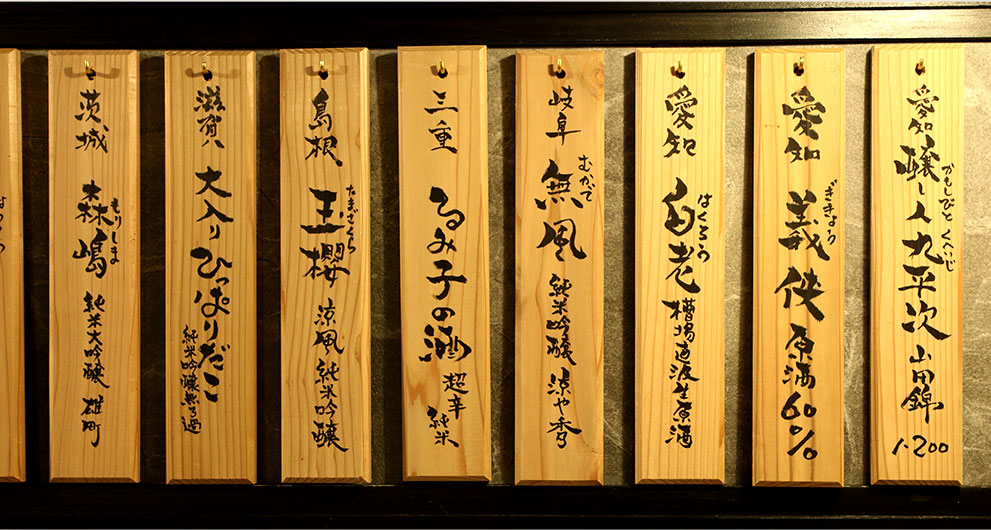 愛知
かもしびと くへいじ
醸し人九平次
山田錦
1.200
愛知
ぎきょう
義侠
原酒60%
愛知
はくろう
白老
槽場直汲生原酒
岐阜
むかで
無風
純米吟醸 涼や香
三重
るみ子の酒
超辛
純米
島根
たまざくら
玉櫻
涼風 純米吟醸
滋賀
大入り ひっぱりだこ
純米吟醸無ろ過
茨城
もりしま
森嶋
純米大吟醸 雄町